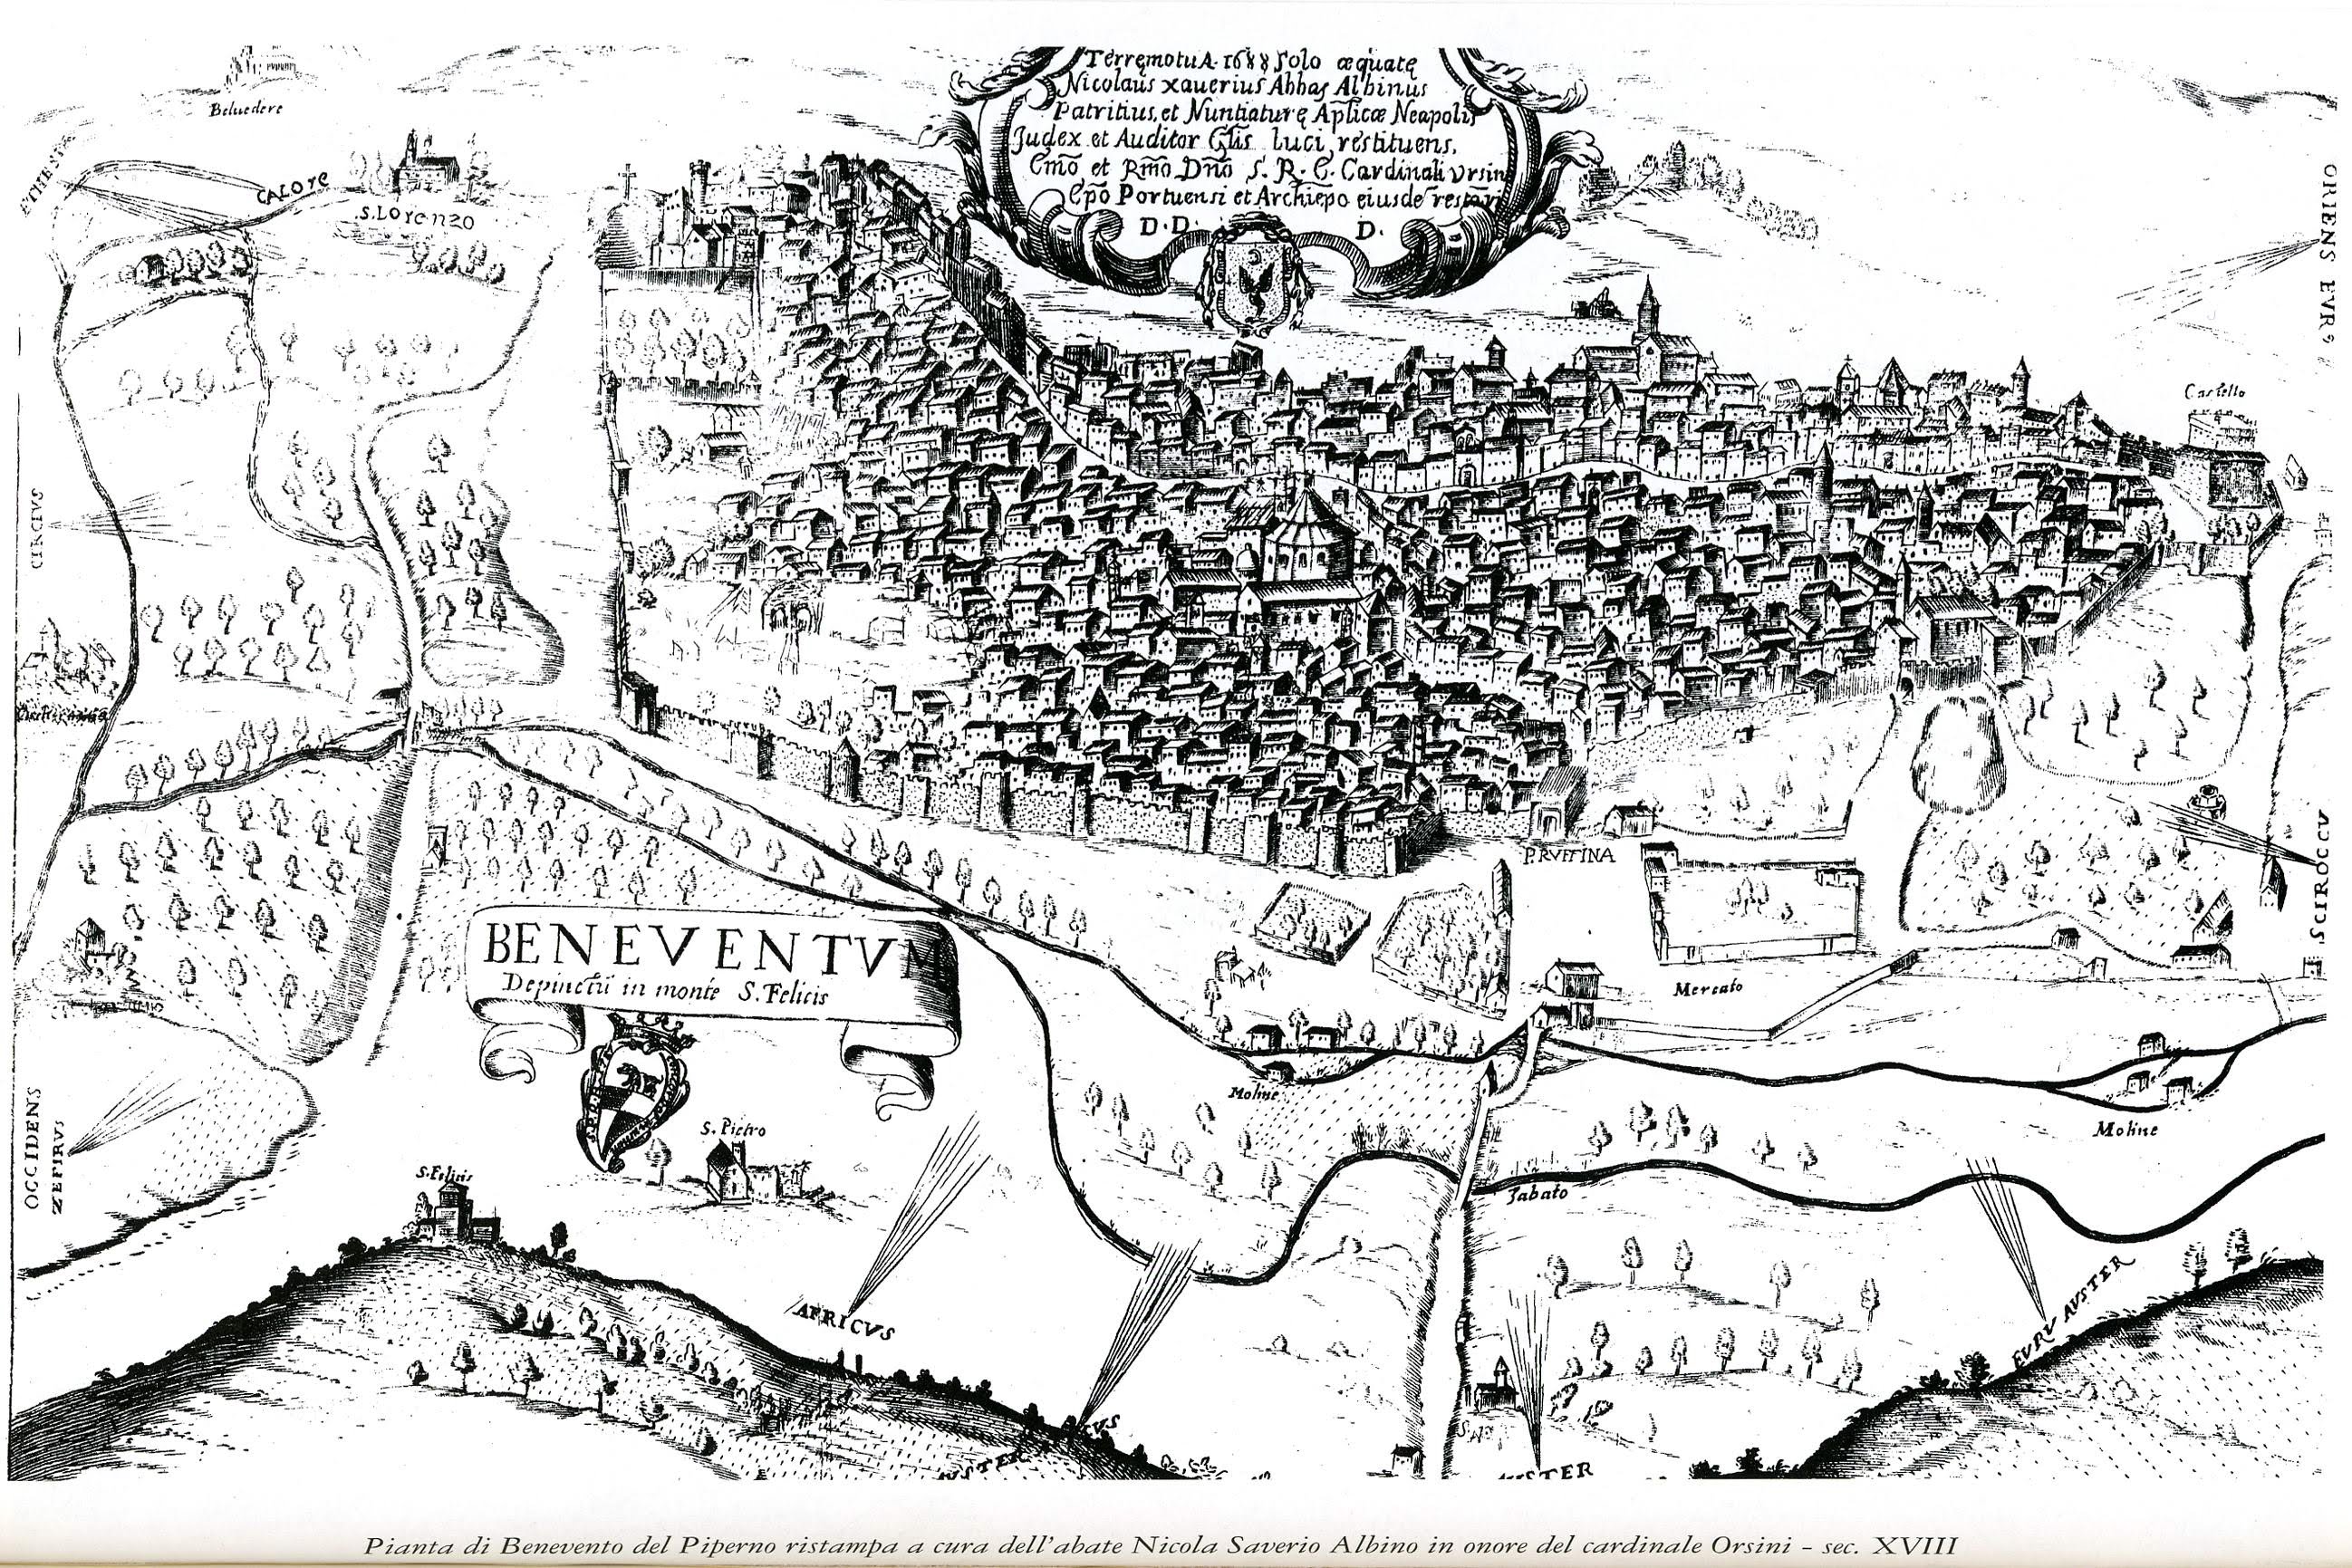 Terręmotu A. 1688 Solo æquatę
Nicolaus xauerius Abbas Albinus
Patritius, et Nuntiaturę Aplicæ Neapolis
Judex et Auditor Glis luci restituens.
Emo et Rmo Dno S. R. E. Cardinali Vrsin
Epo Portuensi et Archiepo eiusde
D. D. D.
Beluedere
ETHES
CALORE
S. Lorenzo
ORIENS EVR9
Castello
CIRCIVS
P. RVFFINA
SCIROCCV
BENEVENTVM
Depinctũ in monte S. Felicis
Mercato
Moline
Moline
OCCIDENS
ZEFIRVS
S. Pietro
S. Felicis
Sabato
AFRICVS
EVRV AVSTER
CVS
VSTER
VSTER
Pianta di Benevento del Piperno ristampa a cura dell'abate Nicola Saverio Albino in onore del cardinale Orsini – sec. XVIII